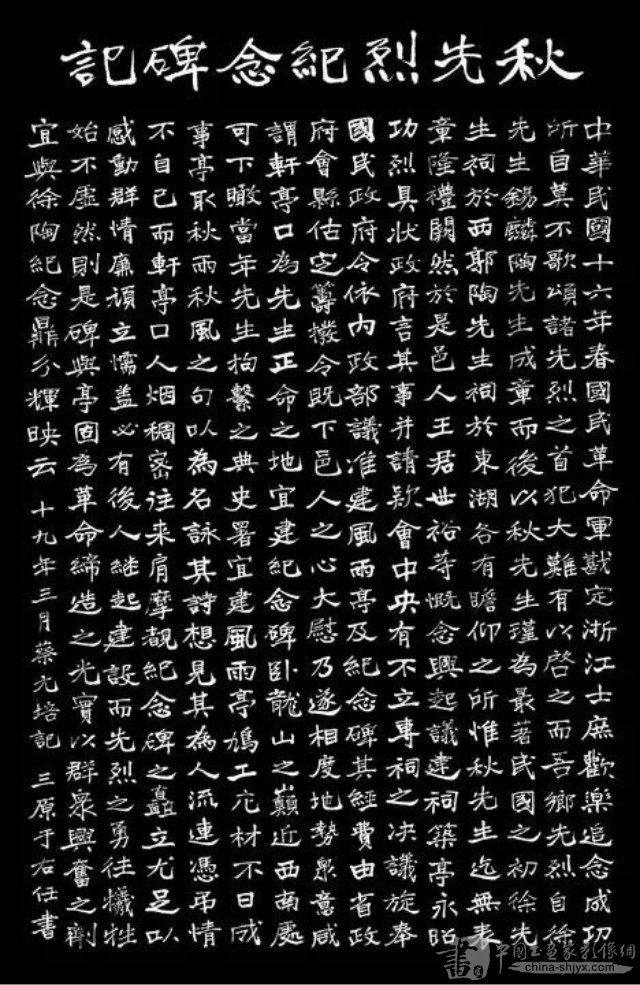 秋先烈紀念碑記
中華民國十六年春國民革命軍戡定浙江士庶歡樂追念成功
所自莫不歌頌諸先烈之首犯大難有以啓之而吾鄉先烈自徐
先生錫麟陶先生成章而後以秋先生瑾為最著民國之初徐先
生祠於西郭陶先生祠於東湖各有瞻仰之所惟秋先生迄無表
章隆禮闕然於是邑人王君世裕等慨念興起議建祠築亭永昭
功烈具狀政府言其事并請款會中央有不立專祠之決議旋奉
國民政府令依內政部議准建風雨亭及紀念碑其經費由省政
府會縣估定籌撥令既下邑人之心大慰乃遂相度地勢衆意咸
謂軒亭口為先生正命之地宜建紀念碑卧龍山之巔近西南處
可下瞰當年先生拘繫之典史署宜建風雨亭鳩工庀材不日成
事亭取秋雨秋風之句以為名詠其詩想見其為人流連憑弔情
不自已而軒亭口人烟稠密往來肩摩覩紀念碑之矗立尤足以
感動群情廉頑立懦盖必有後人継起建設而先烈之勇往犧牲
始不虛然則是碑與亭固為革命締造之光實以群衆興奮之劑
宜與徐陶紀念鼎分輝映云 十九年三月蔡元培記 三原于右任書
書 中國書畫家影像網
china-shjyx.com